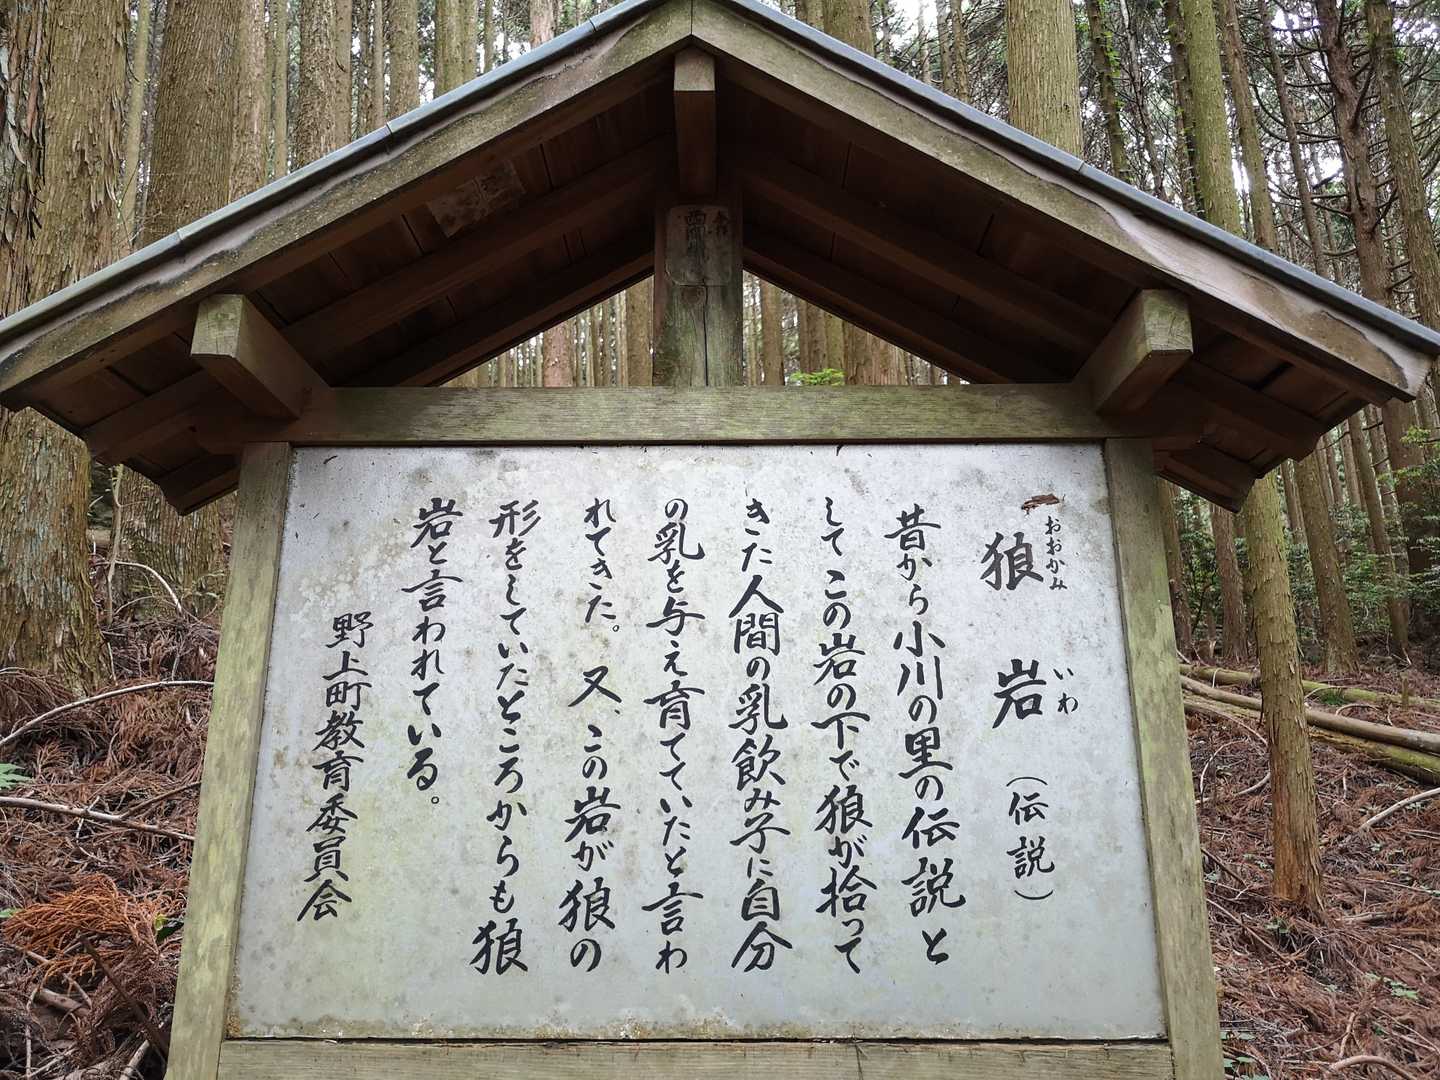 狼岩（伝説）
おおかみ いわ
昔から小川の里の伝説と
してこの岩の下で狼が拾って
きた人間の乳飲み子に自分
の乳を与え育てていたと言わ
れてきた。又、この岩が狼の
形をしていたところからも狼
岩と言われている。
野上町教育委員会